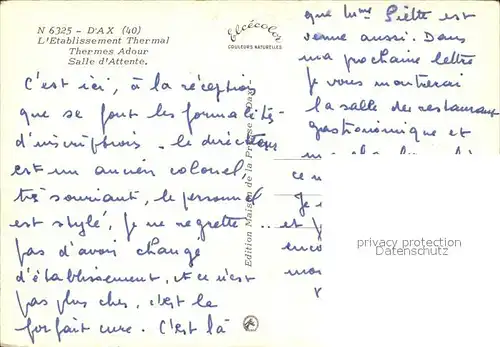 N 6325 - DAX (40)
L'Etablissement Thermal
Thermes Adour
Salle d'Attente.
Elcécolor
COULEURS NATURELLES
Edition Maison de la Presse
C'est ici, à la réception
que se font les formalités
d'inscriptions. le directeur
est un ancien colonel,
très souriant, le personnel
est stylé, je ne regrette
pas d'avoir changé
d'établissement, et ce n'est
pas plus cher, c'est le
forfait cure. C'est là
que Mme Piette est
venue aussi. Dans
ma prochaine lettre
je vous montrerai
la salle de restaurant
gastronomique et
ce
Je
et
enco
mon
privacy protection
Datenschutz